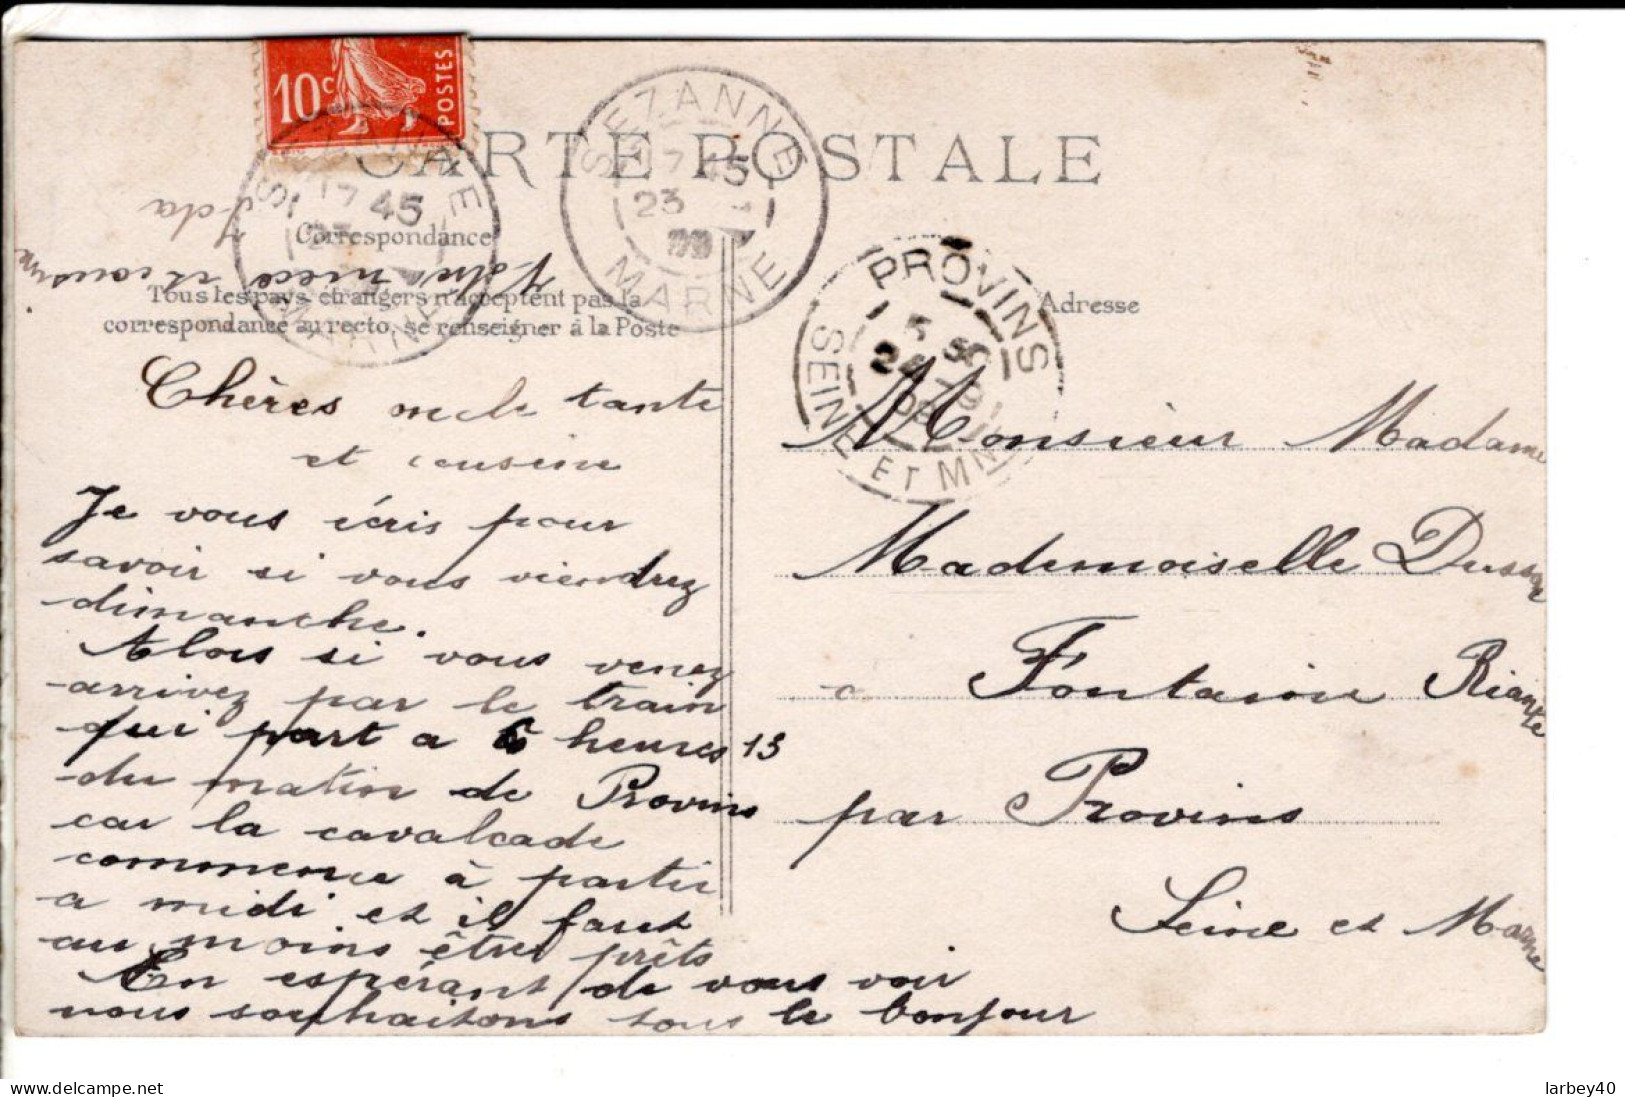 10c POSTES
CARTE POSTALE
SEZANNE
7 45
23
MARNE
SEZANNE
7 45
23
MARNE
PROVINS
SEINE ET MNE
Correspondance
Tous les pays étrangers n'acceptent pas la
correspondance au recto, se renseigner à la Poste
Adresse
Chères oncle tante
et cousine
Je vous écris pour
savoir si vous viendrez
dimanche.
Alors si vous venez
arrivez par le train
qui part a 6 heures 13
du matin de Provins
car la cavalcade
commence à partir
a midi et il faut
au moins être prêts
En espérant de vous voir
nous souhaitons tous le bonjour
Votre niece et cousine
Ida
Monsieur Madame
Mademoiselle
a Fontaine Riante
par Provins
Seine et Marne
larbey40